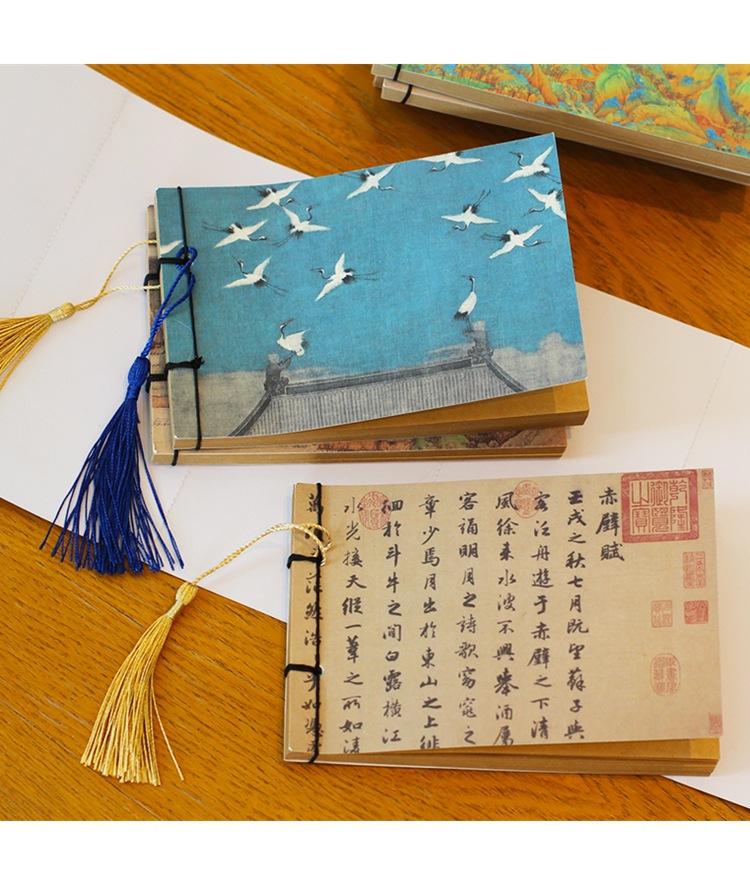 赤壁賦
壬戌之秋七月既望蘇子與
客泛舟遊于赤壁之下清
風徐来水波不興舉酒屬
客誦明月之詩歌窈窕之
章少焉月出於東山之上徘
徊於斗牛之間白露橫江
水光接天縱一葦之所如凌
萬茫然浩乎如
乾隆御覽之寶